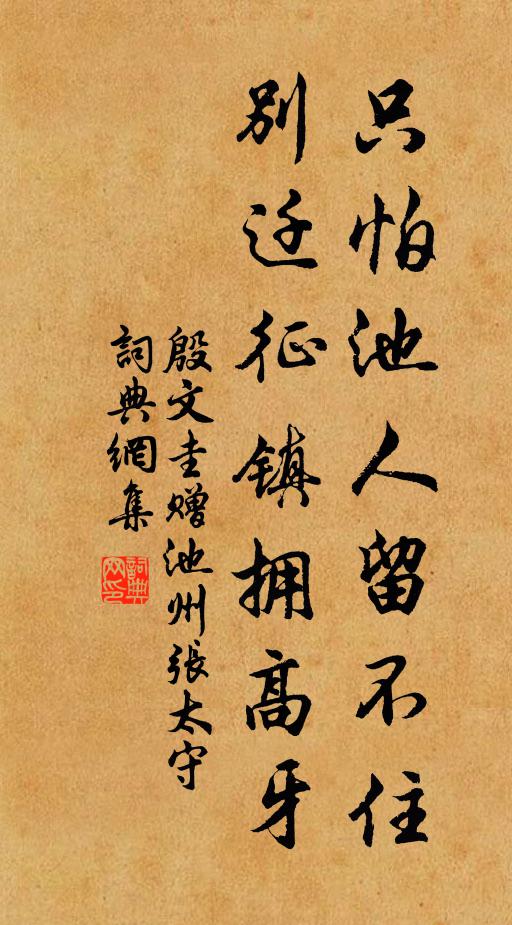 只怕池人留不住
别迁征镇拥高牙
殷文圭赠池州張太守
詞典網集
詞典网印